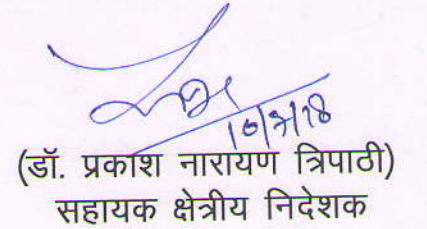 (डॉ. प्रकाश नारायण त्रिपाठी)
सहायक क्षेत्रीय निदेशक